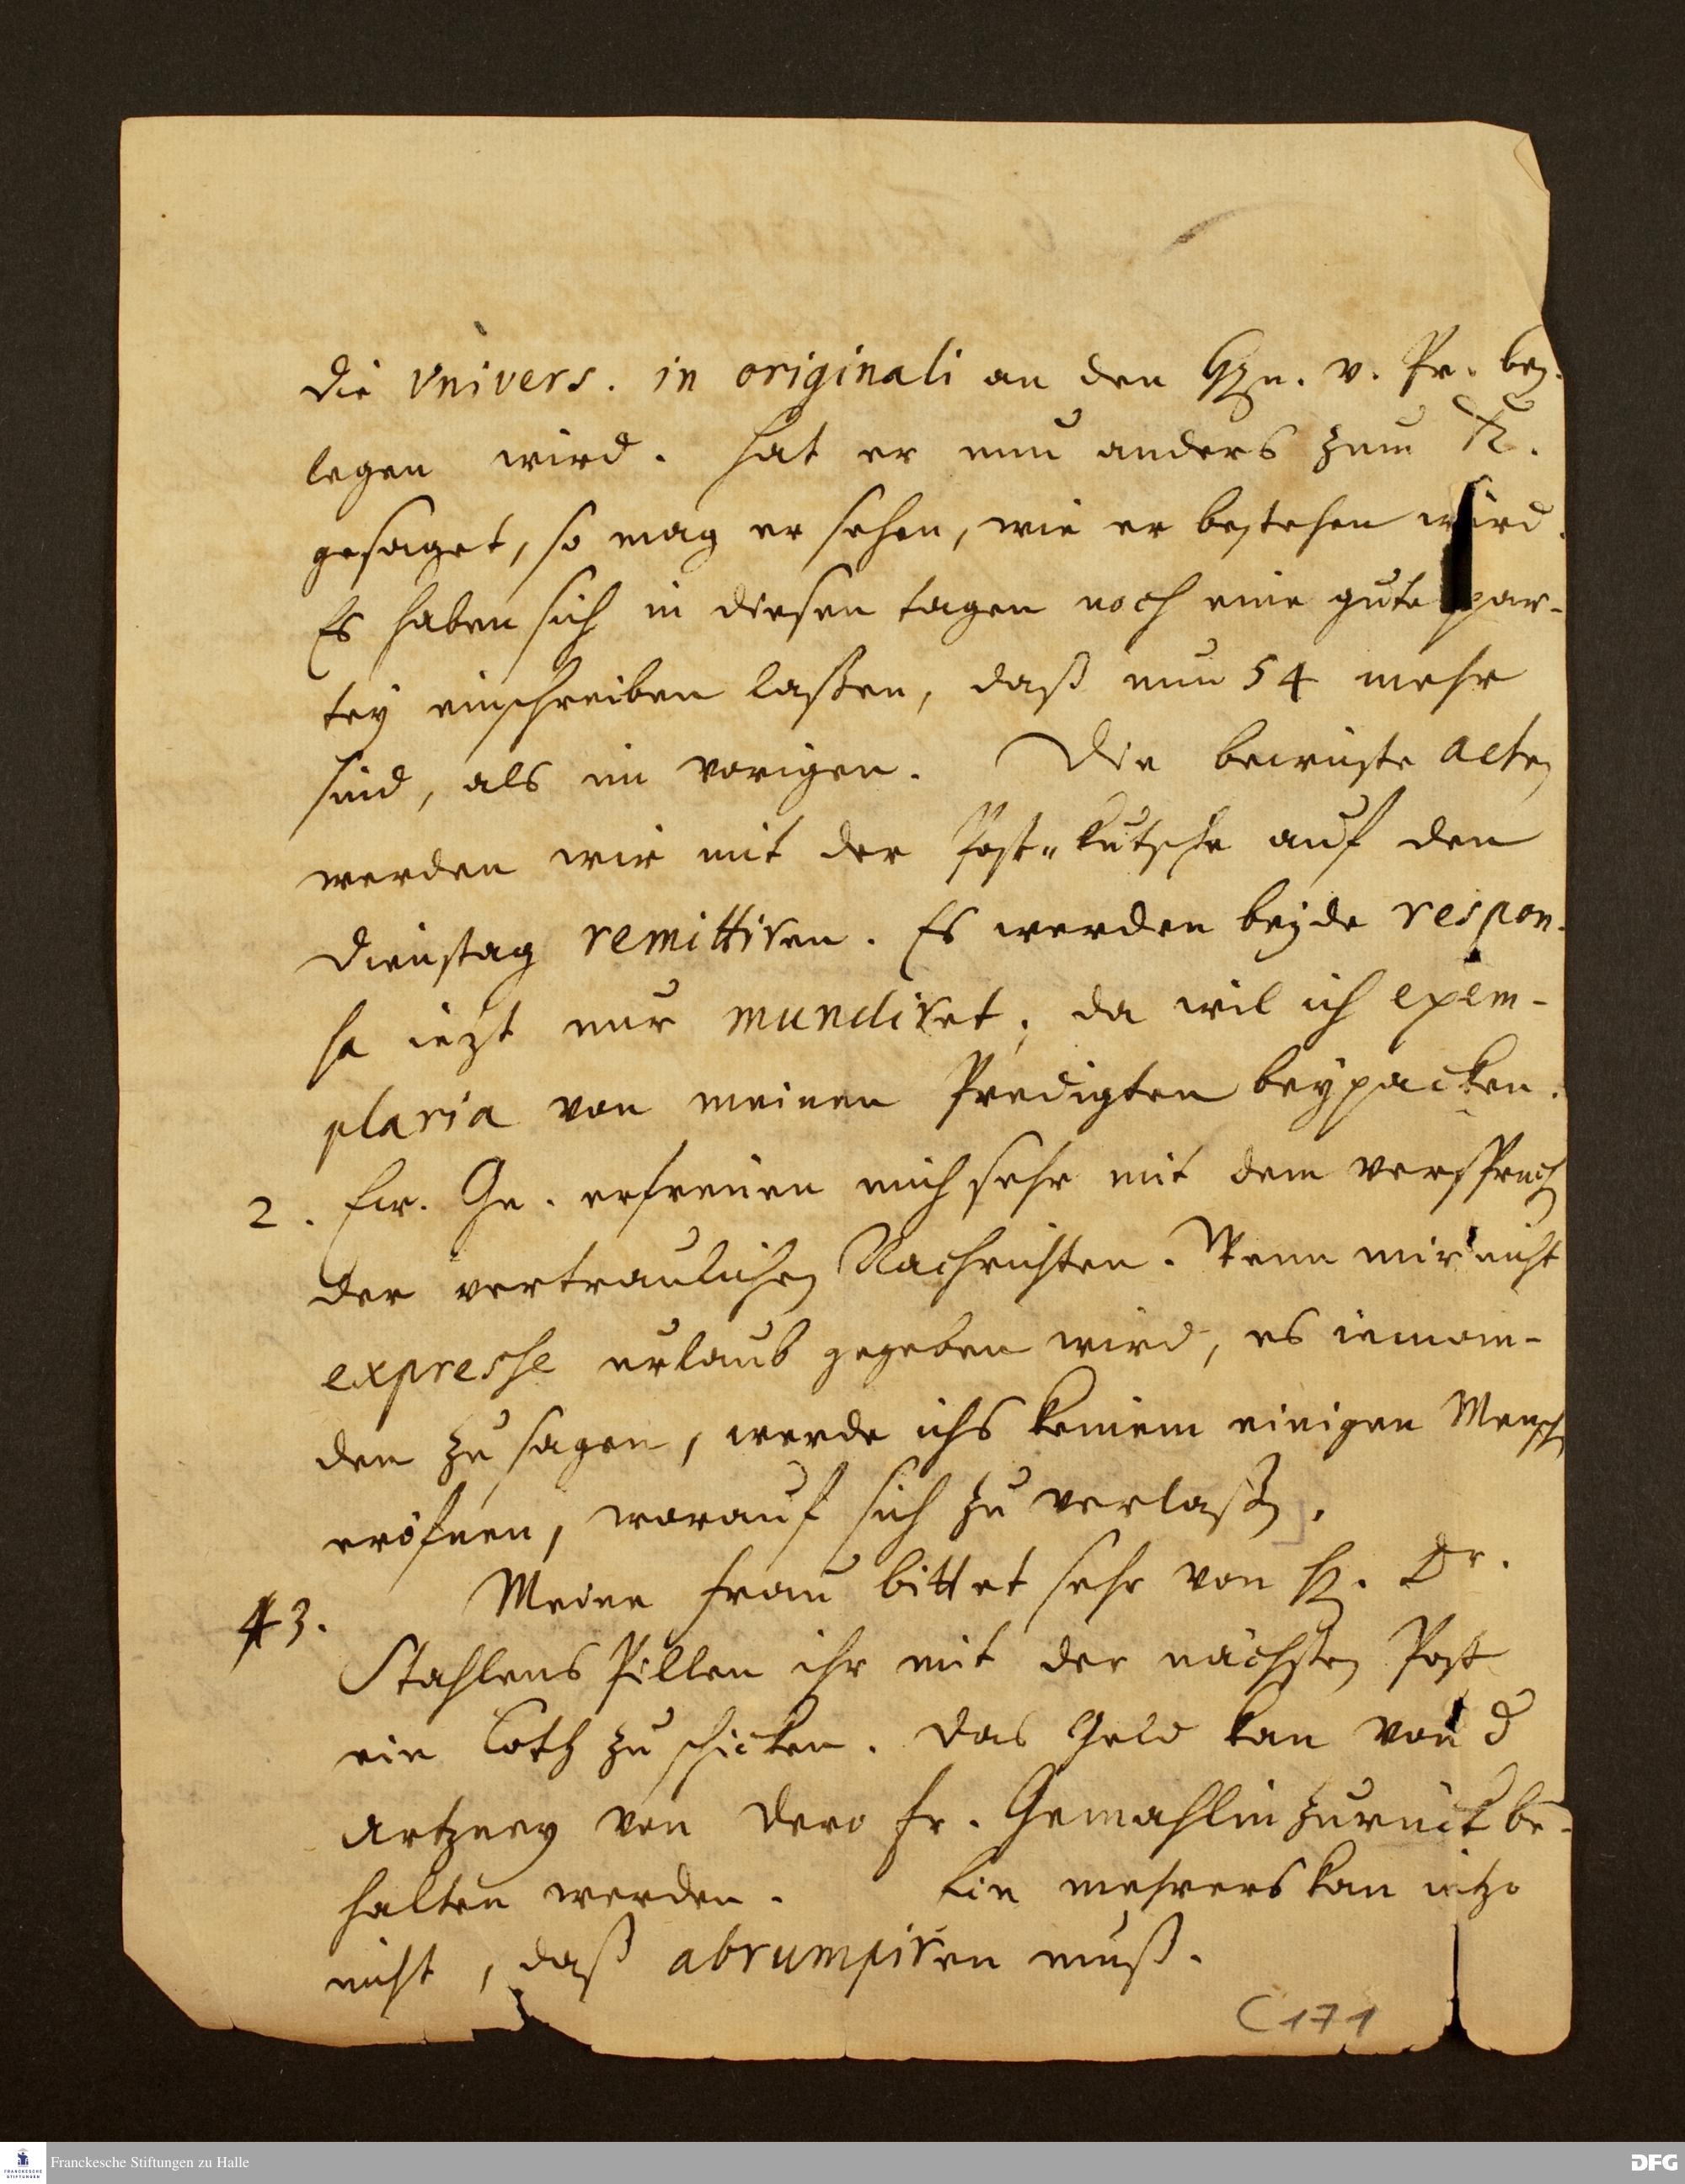 die Vnivers. in originali an den Hrn. v. Pr. bey-
legen wird. Hat er nun anders zum K.
gesaget, so mag er sehen, wie er bestehen wird.
Es haben sich in diesen tagen noch eine gute par-
tey einschreiben laßen, daß nun 54 mehr
sind, als im vorigen. Die bewuste acten
werden wir mit der Post-kutsche auf den
Dienstag remittiren. Es werden beyde respon-
sa iezt nur mundiret, da wil ich exem-
plaria von meinen Predigten beypacken.
2. Ew. Gn. erfreuen mich sehr mit dem versprech
der vertraulichen Nachrichten. Wenn mir nicht
expresse urlaub gegeben wird, es ieman-
den zu sagen, werde ichs keinem einigen Mensch
eröfnen, worauf sich zu verlaßen.
43. Meine Frau bittet sehr von H. Dr.
Stahlens Pillen ihr mit der nächsten Post
ein Loth zu schicken. Das Geld kan von d
Artzney von Dero Fr. Gemahlin zurück be-
halten werden. Ein mehrers kan ietzo
nicht, daß abrumpiren muß.
C 171
Franckesche Stiftungen zu Halle
DFG